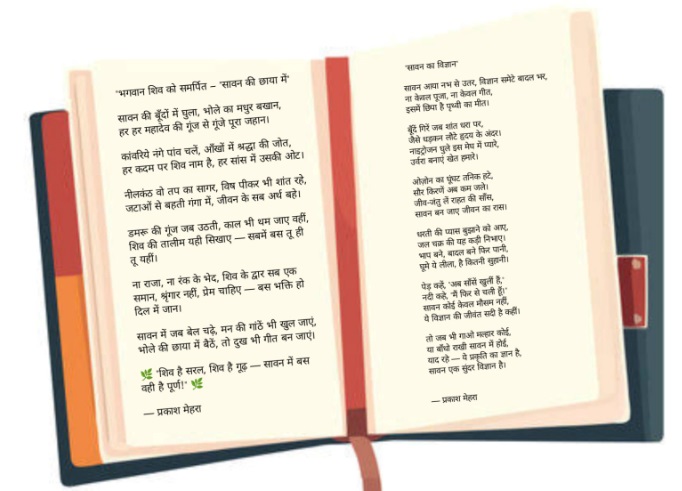 'भगवान शिव को समर्पित – 'सावन की छाया में'
सावन की बूँदों में घुला, भोले का मधुर बखान,
हर हर महादेव की गूंज से गूंजे पूरा जहान।
कांवरिये नंगे पांव चलें, आँखों में श्रद्धा की जोत,
हर कदम पर शिव नाम है, हर सांस में उसकी ओट।
नीलकंठ वो तप का सागर, विष पीकर भी शांत रहे,
जटाओं से बहती गंगा में, जीवन के सब अर्थ बहे।
डमरू की गूंज जब उठती, काल भी थम जाए वहीं,
शिव की तालीम यही सिखाए — सबमें बस तू ही
तू यहीं।
ना राजा, ना रंक के भेद, शिव के द्वार सब एक
समान, श्रृंगार नहीं, प्रेम चाहिए — बस भक्ति हो
दिल में जान।
सावन में जब बेल चढ़े, मन की गांठें भी खुल जाएं,
भोले की छाया में बैठें, तो दुख भी गीत बन जाएं।
🌿 "शिव है सरल, शिव है गूढ़ — सावन में बस
वही है पूर्ण!" 🌿
— प्रकाश मेहरा
'सावन का विज्ञान'
सावन आया नभ से उतर, विज्ञान समेटे बादल भर,
ना केवल पूजा, ना केवल गीत,
इसमें छिपा है पृथ्वी का मीत।
बूँदें गिरें जब शांत धरा पर,
जैसे धड़कन लौटे हृदय के अंदर।
नाइट्रोजन घुले इस मेघ में प्यारे,
उर्वरा बनाएं खेत हमारे।
ओज़ोन का घूंघट तनिक हटे,
सौर किरणें अब कम जले।
जीव-जंतु लें राहत की साँस,
सावन बन जाए जीवन का रास।
धरती की प्यास बुझाने को आए,
जल चक्र की यह कड़ी निभाए।
भाप बने, बादल बने फिर पानी,
घूमे ये लीला, है कितनी सुहानी।
पेड़ कहें, 'अब साँसें खुली हैं,'
नदी कहे, 'मैं फिर से चली हूँ।'
सावन कोई केवल मौसम नहीं,
ये विज्ञान की जीवंत सदी है कहीं।
तो जब भी गाओ मल्हार कोई,
या बाँधो राखी सावन में होई,
याद रहे — ये प्रकृति का ज्ञान है,
सावन एक सुंदर विज्ञान है।
— प्रकाश मेहरा